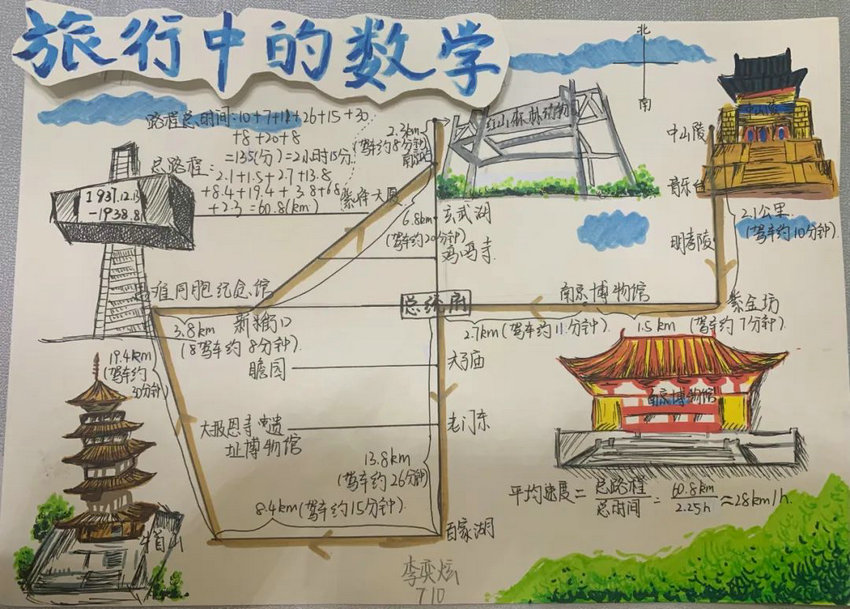 旅行中的数学
北
南
路程总时间:10+7+11+26+15+30
+8+20+8
=135(分)=2小时15分.
总路程:
=2.1+1.5+2.7+13.8
+8.4+19.4+3.8+6.8
+2.3=60.8(km)
2.3km
(驾车约8分钟)
红山森林动物
中山陵
音乐台
明孝陵
2.1公里
(驾车约10分钟)
1937.12.13
-1938.8
紫峰大厦
6.8km
(驾车约20分钟)
玄武湖
鸡鸣寺
同胞纪念馆
总统府
南京博物馆
紫金坊
3.8km
(驾车约8分钟)
新街口
2.7km(驾车约11分钟)
1.5km
(驾车约7分钟)
19.4km
(驾车约
30分钟)
瞻园
夫子庙
南京博物馆
大报恩寺遗
址博物馆
老门东
13.8km
(驾车约26分钟)
8.4km(驾车约15分钟)
百家湖
牛首山
平均速度=总路程/总时间=60.8km/2.25h≈28km/h.
李奕炫
710